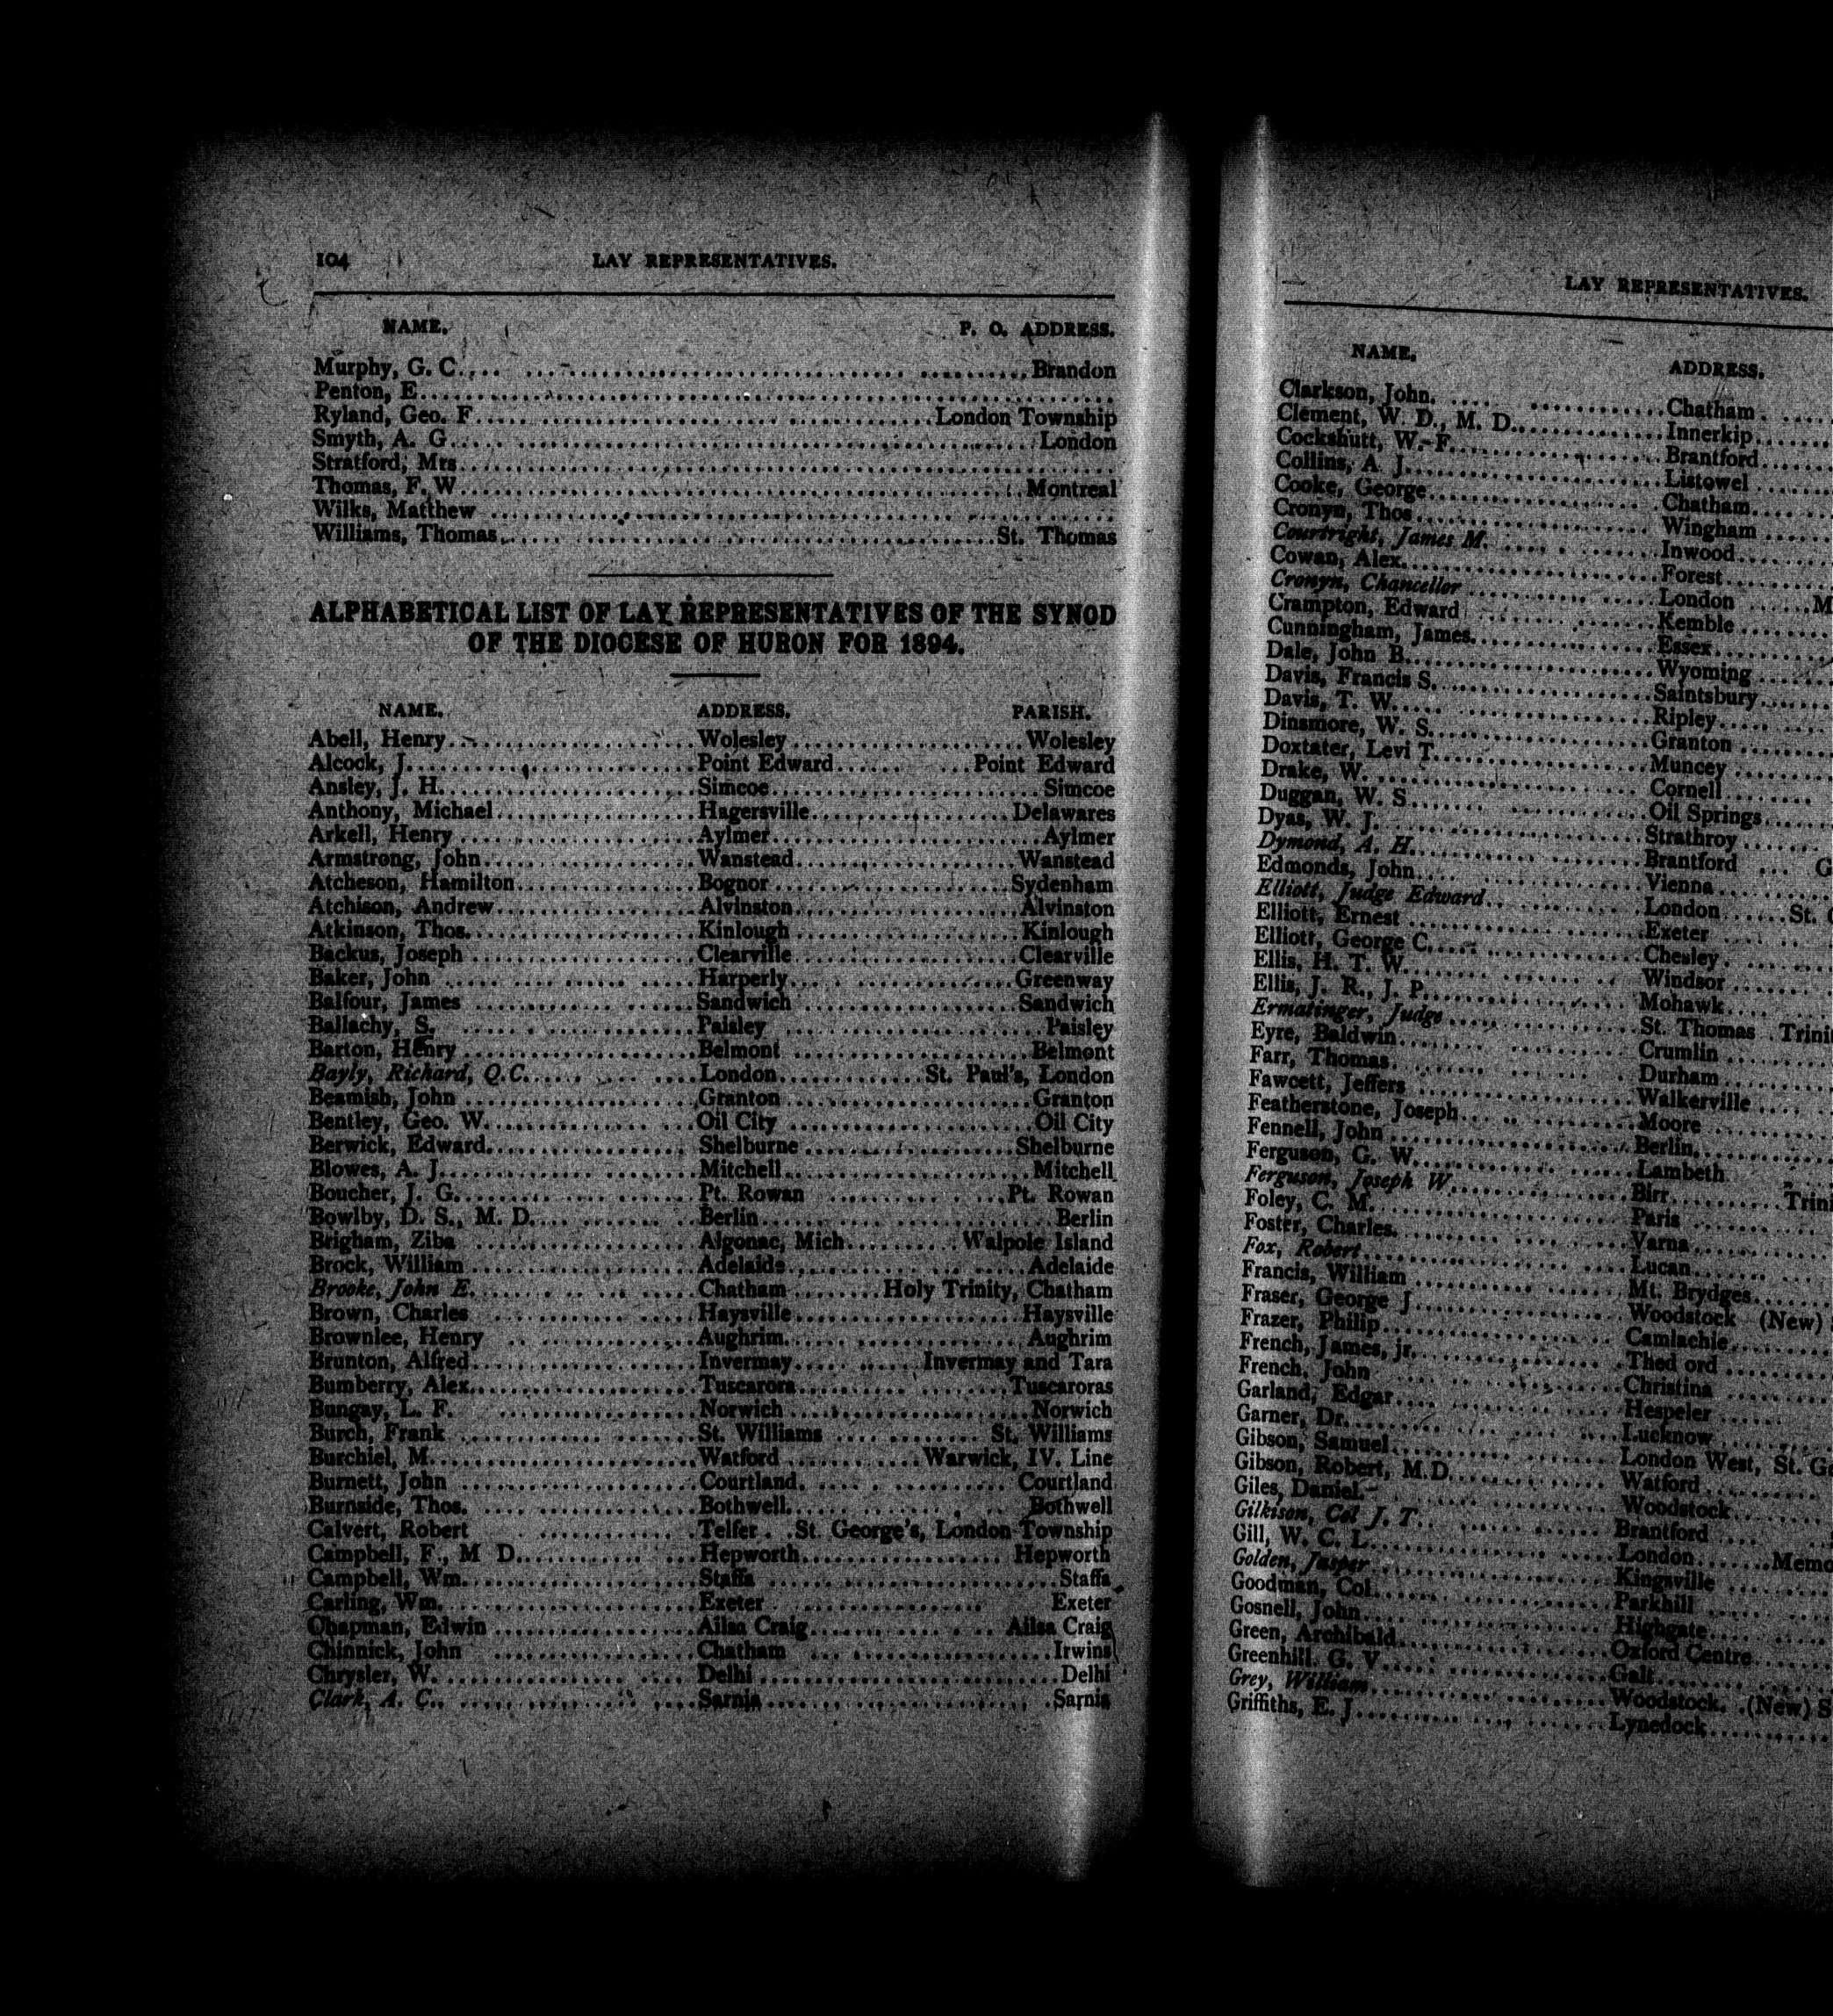 104 LAY REPRESENTATIVES.
NAME. P. O. ADDRESS.
Murphy, G. C. .... Brandon
Penton, E. ....
Ryland, Geo. F. .... London Township
Smyth, A. G. .... London
Stratford, Mrs. ....
Thomas, F. W. .... Montreal
Wilks, Matthew ....
Williams, Thomas .... St. Thomas
ALPHABETICAL LIST OF LAY REPRESENTATIVES OF THE SYNOD
OF THE DIOCESE OF HURON FOR 1894.
NAME. ADDRESS. PARISH.
Abell, Henry .... Wolesley .... Wolesley
Alcock, J. .... Point Edward .... Point Edward
Ansley, J. H. .... Simcoe .... Simcoe
Anthony, Michael .... Hagersville .... Delawares
Arkell, Henry .... Aylmer .... Aylmer
Armstrong, John .... Wanstead .... Wanstead
Atcheson, Hamilton .... Bognor .... Sydenham
Atchison, Andrew .... Alvinston .... Alvinston
Atkinson, Thos. .... Kinlough .... Kinlough
Backus, Joseph .... Clearville .... Clearville
Baker, John .... Harperly .... Greenway
Balfour, James .... Sandwich .... Sandwich
Ballachy, S. .... Paisley .... Paisley
Barton, Henry .... Belmont .... Belmont
Bayly, Richard, Q.C. .... London .... St. Paul's, London
Beamish, John .... Granton .... Granton
Bentley, Geo. W. .... Oil City .... Oil City
Berwick, Edward .... Shelburne .... Shelburne
Blowes, A. J. .... Mitchell .... Mitchell
Boucher, J. G. .... Pt. Rowan .... Pt. Rowan
Bowlby, D. S., M. D. .... Berlin .... Berlin
Brigham, Ziba .... Algonac, Mich .... Walpole Island
Brock, William .... Adelaide .... Adelaide
Brooke, John E. .... Chatham .... Holy Trinity, Chatham
Brown, Charles .... Haysville .... Haysville
Brownlee, Henry .... Aughrim .... Aughrim
Brunton, Alfred .... Invermay .... Invermay and Tara
Bumberry, Alex. .... Tuscarora .... Tuscaroras
Bungay, L. F. .... Norwich .... Norwich
Burch, Frank .... St. Williams .... St. Williams
Burchiel, M. .... Watford .... Warwick, IV. Line
Burnett, John .... Courtland .... Courtland
Burnside, Thos. .... Bothwell .... Bothwell
Calvert, Robert .... Telfer . St George's, London Township
Campbell, F., M D. .... Hepworth .... Hepworth
Campbell, Wm. .... Staffa .... Staffa
Carling, Wm. .... Exeter .... Exeter
Chapman, Edwin .... Ailsa Craig .... Ailsa Craig
Chinnick, John .... Chatham .... Irwins
Chrysler, W. .... Delhi .... Delhi
Clark, A. C. .... Sarnia .... Sarnia
LAY REPRESENTATIVES.
NAME. ADDRESS.
Clarkson, John. .... Chatham ....
Clement, W. D., M. D. .... Innerkip ....
Cockshutt, W. F. .... Brantford ....
Collins, A J. .... Listowel ....
Cooke, George .... Chatham ....
Cronyn, Thos .... Wingham ....
Courtright, James M. .... Inwood ....
Cowan, Alex. .... Forest ....
Cronyn, Chancellor .... London .... M
Crampton, Edward .... Kemble ....
Cunningham, James. .... Essex ....
Dale, John B. .... Wyoming ....
Davis, Francis S. .... Saintsbury ....
Davis, T. W. .... Ripley ....
Dinsmore, W. S. .... Granton ....
Doxtater, Levi T. .... Muncey ....
Drake, W. .... Cornell ....
Duggan, W. S .... Oil Springs ....
Dyas, W. J. .... Strathroy ....
Dymond, A. H. .... Brantford .... G
Edmonds, John .... Vienna ....
Elliott, Judge Edward .... London .... St.
Elliott, Ernest .... Exeter ....
Elliott, George C. .... Chesley ....
Ellis, H. T. W. .... Windsor ....
Ellis, J. R., J. P. .... Mohawk ....
Ermatinger, Judge .... St. Thomas . Trinit
Eyre, Baldwin .... Crumlin ....
Farr, Thomas .... Durham ....
Fawcett, Jeffers .... Walkerville ....
Featherstone, Joseph .... Moore ....
Fennell, John .... Berlin ....
Ferguson, G. W. .... Lambeth ....
Ferguson, Joseph W. .... Birr .... Trini
Foley, C. M. .... Paris ....
Foster, Charles. .... Varna ....
Fox, Robert .... Lucan ....
Francis, William .... Mt. Brydges ....
Fraser, George J .... Woodstock (New)
Frazer, Philip .... Camlachie ....
French, James, jr. .... Thed ord ....
French, John .... Christina ....
Garland, Edgar .... Hespeler ....
Garner, Dr. .... Lucknow ....
Gibson, Samuel .... London West, St. Ge
Gibson, Robert, M.D. .... Watford ....
Giles, Daniel. .... Woodstock ....
Gilkison, Col J. T. .... Brantford ....
Gill, W. C. L. .... London .... Memo
Golden, Jasper .... Kingsville ....
Goodman, Col. .... Parkhill ....
Gosnell, John .... Highgate ....
Green, Archibald .... Oxford Centre ....
Greenhill. G. V .... Galt ....
Grey, William .... Woodstock. .(New) S
Griffiths, E. J .... Lynedock ....